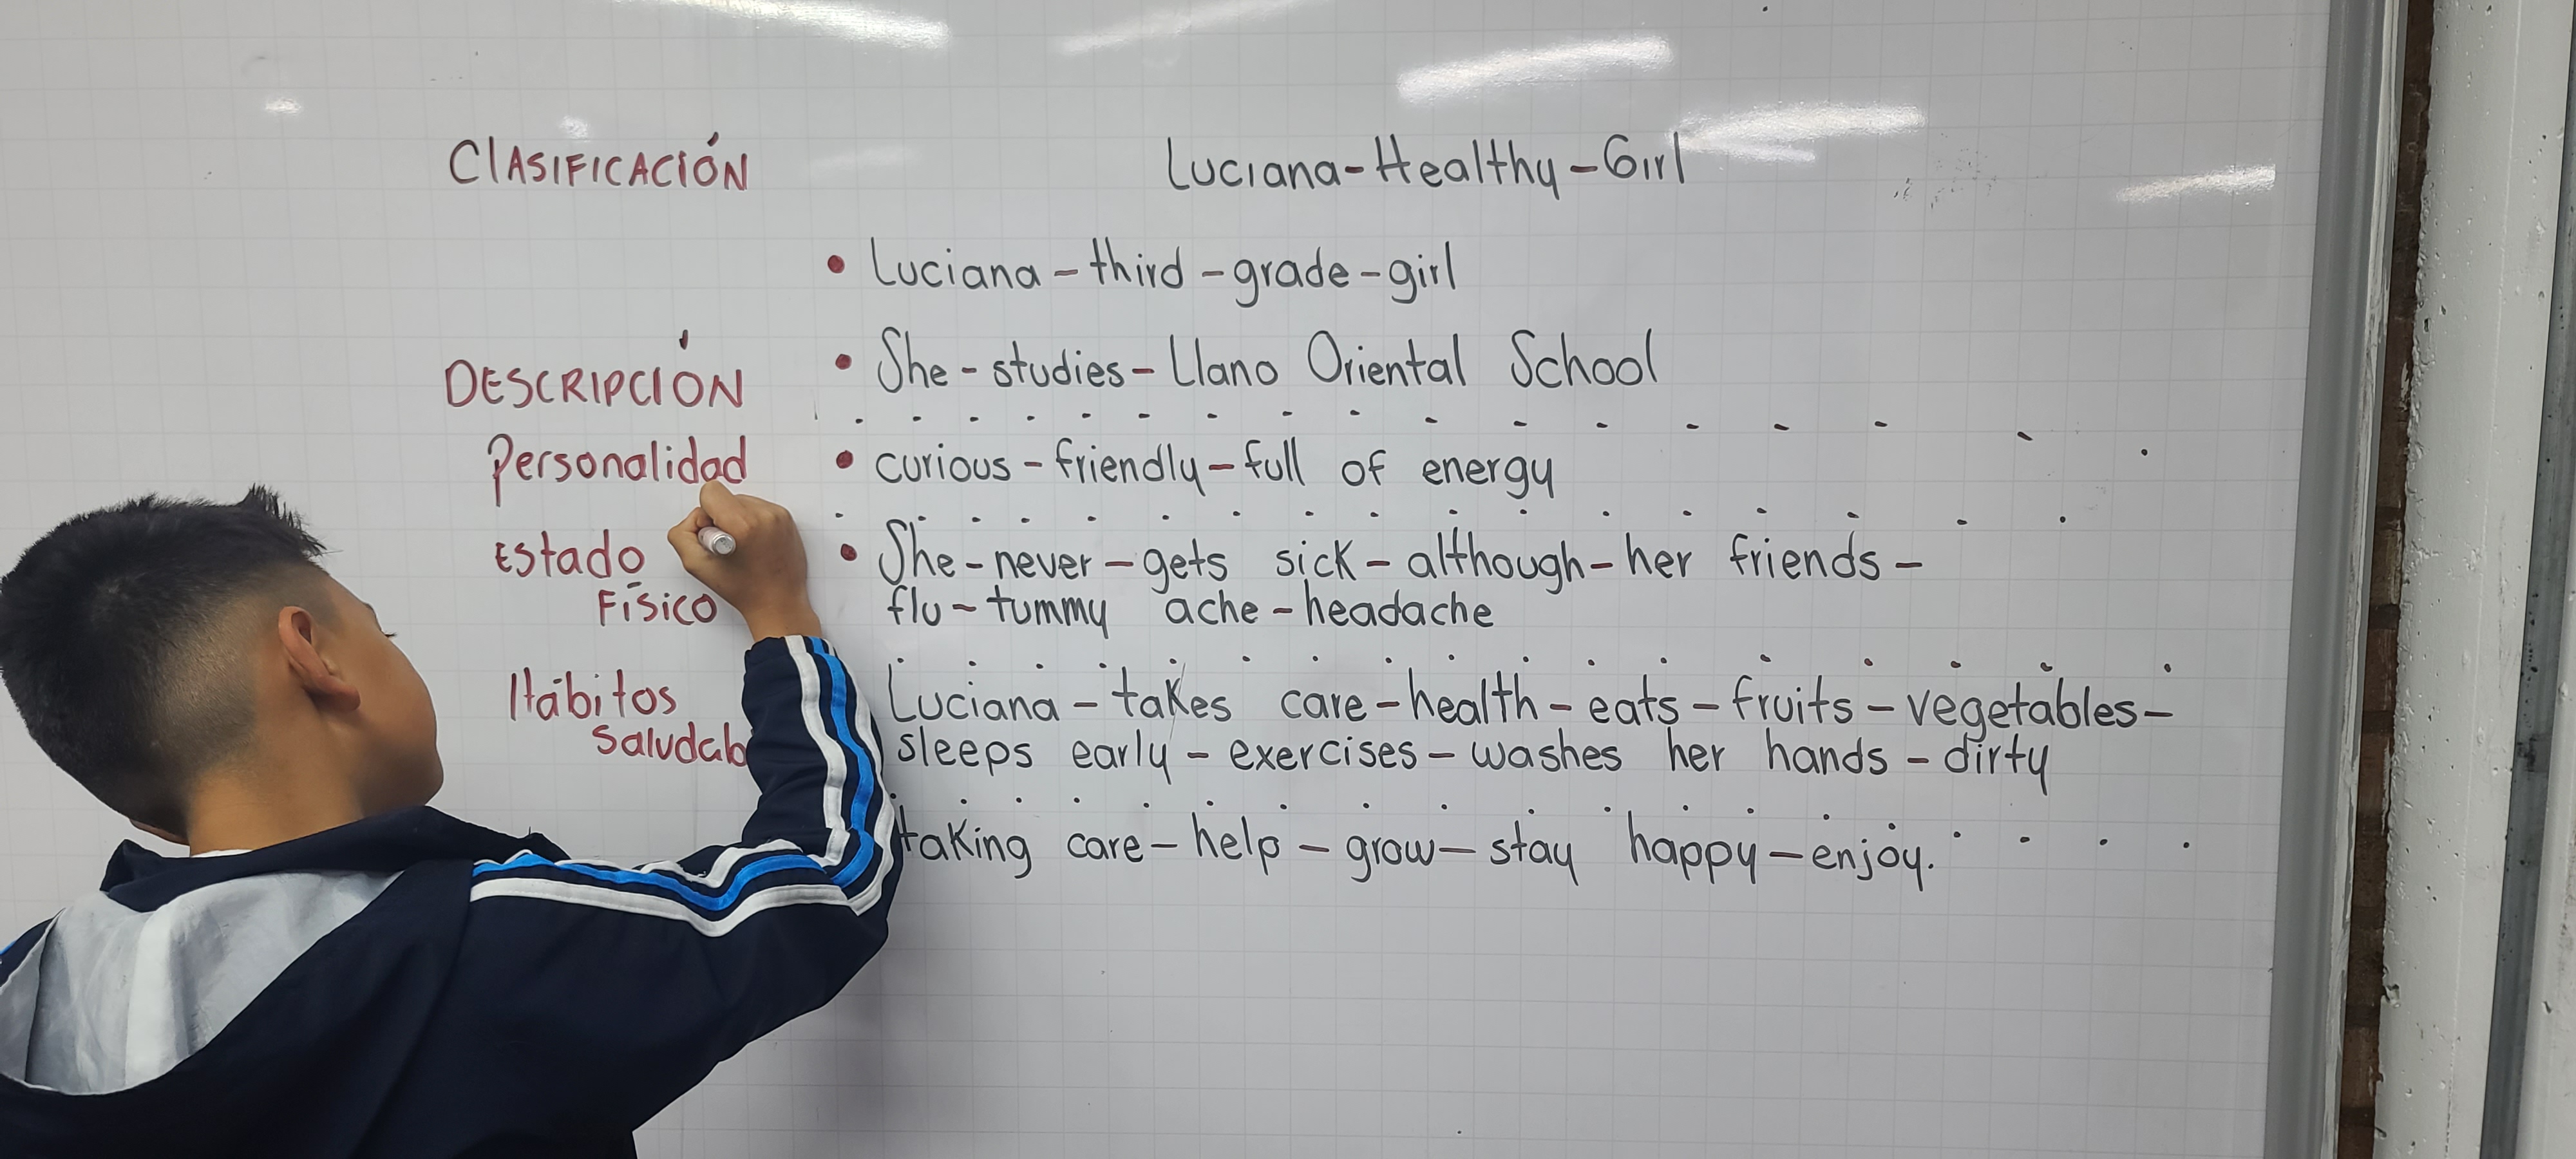 CLASIFICACIÓN Luciana-Healthy-Girl
• Luciana-third-grade-girl
DESCRIPCIÓN • She-studies-Llano Oriental School
Personalidad • curious-friendly-full of energy
Estado • She-never-gets sick-although-her friends-
Físico flu-tummy ache-headache
Hábitos Luciana-takes care-health-eats-fruits-vegetables-
sleeps early-exercises-washes her hands-dirty
taking care-help-grow-stay happy-enjoy.